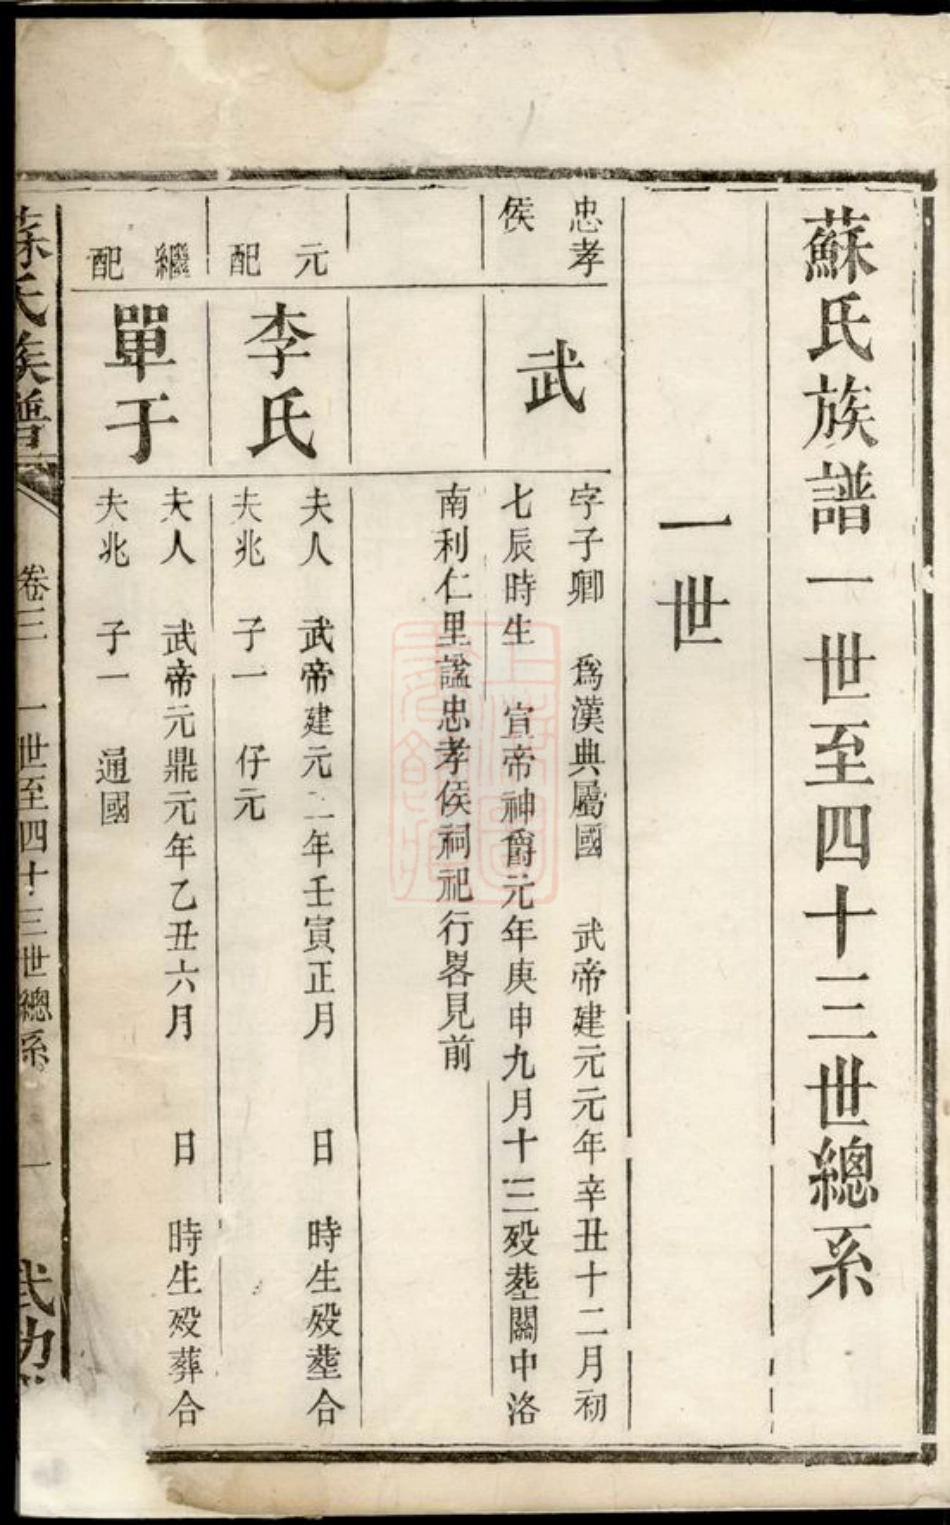 蘇氏族譜一世至四十三世總系
一世
忠孝
侯
武
字子卿 爲漢典屬國 武帝建元元年辛丑十二月初
七辰時生 宣帝神爵元年庚申九月十三歿塟關中洛
南利仁里諡忠孝侯祠祀行畧見前
元
配
李氏
夫人 武帝建元二年壬寅正月 日 時生歿塟合
夫兆 子一 仔元
繼
配
單于
夫人 武帝元鼎元年乙丑六月 日 時生歿葬合
夫兆 子一 通國
蘇氏族譜 卷三 一世至四十三世總系 一 武功